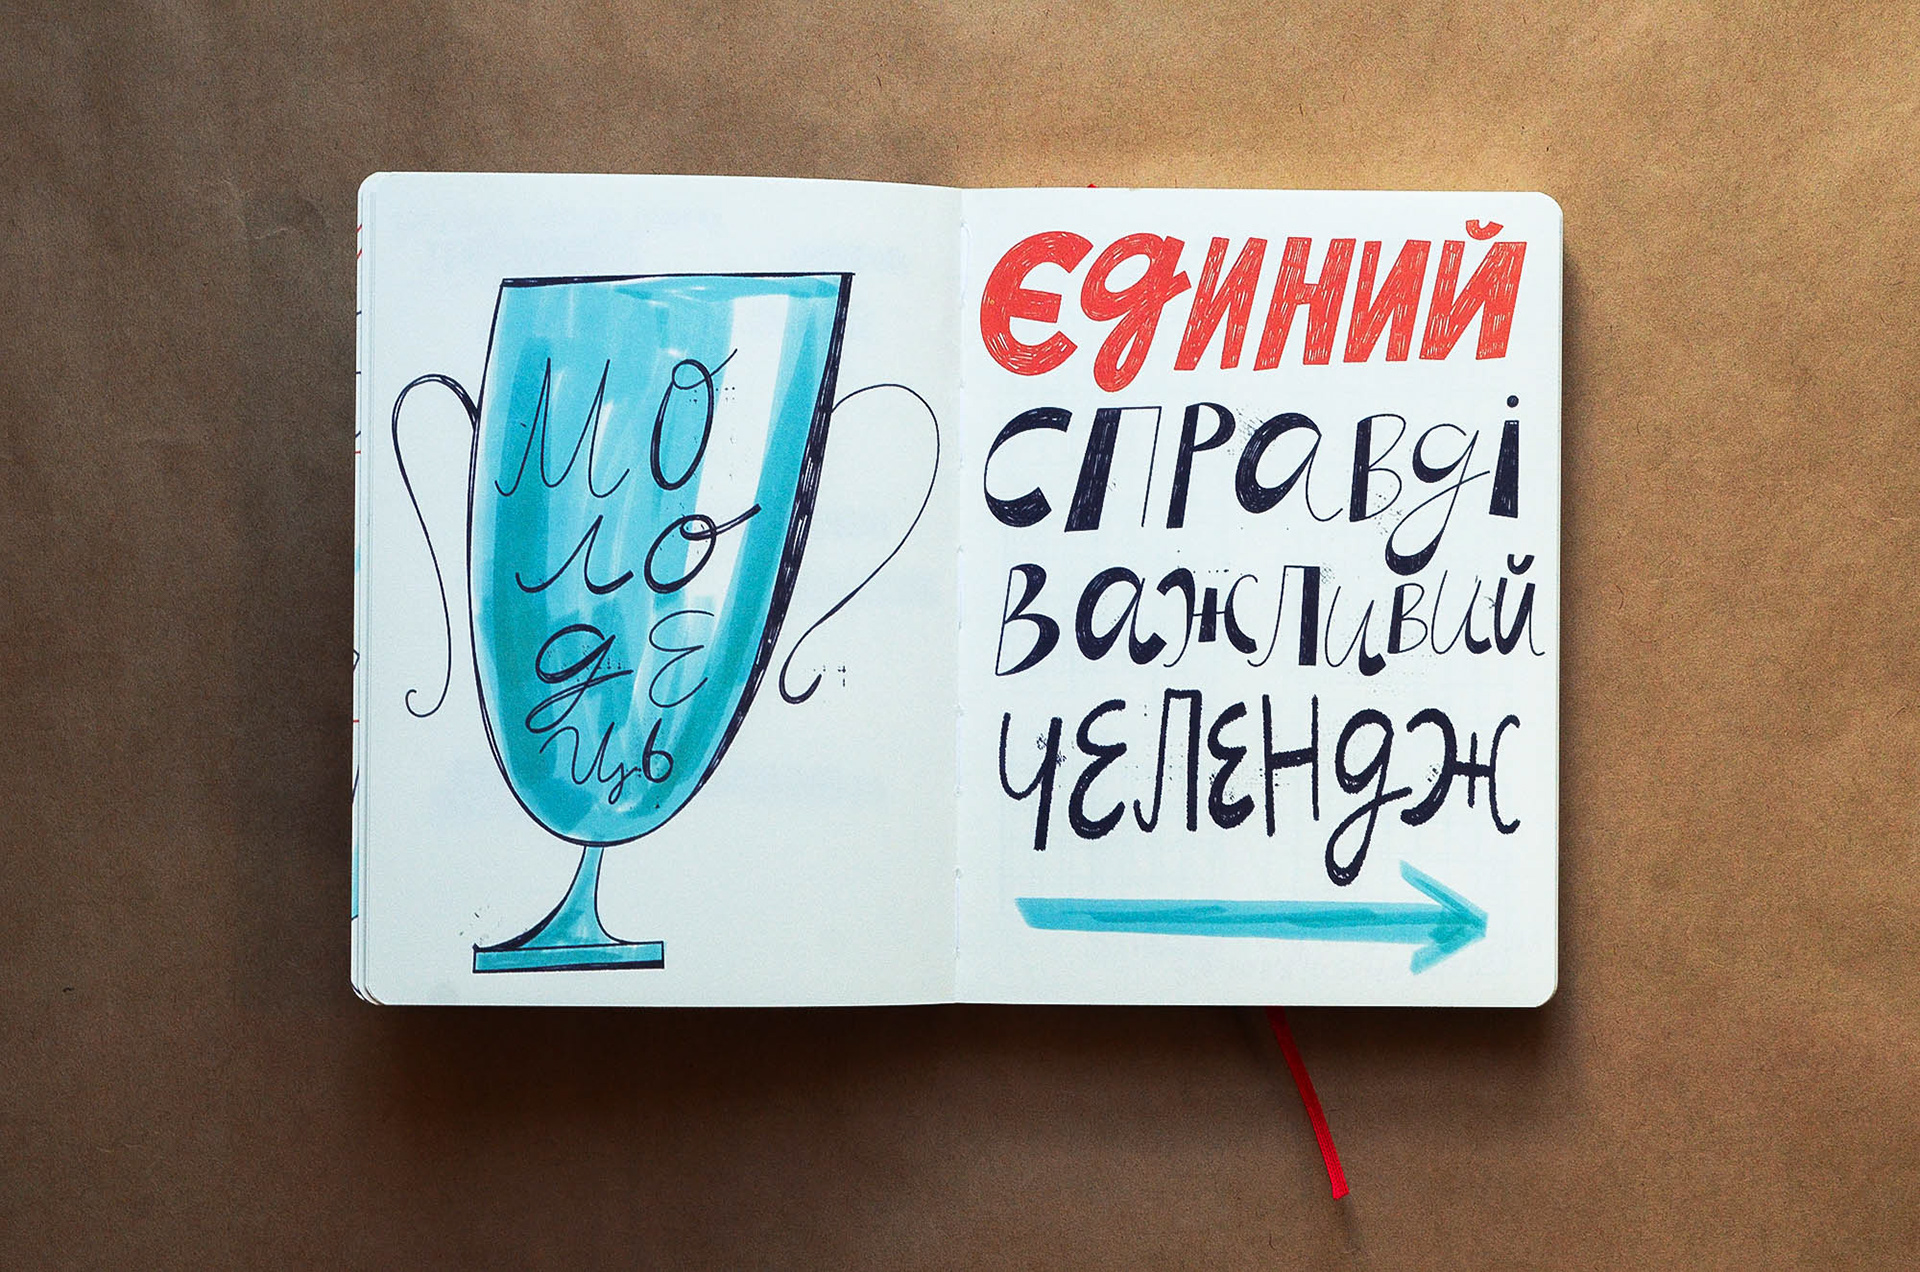 мо
ло
дЕ
ць
ЄДИНИЙ
СПРАВДІ
ВАЖЛИВИЙ
ЧЕЛЕНДЖ